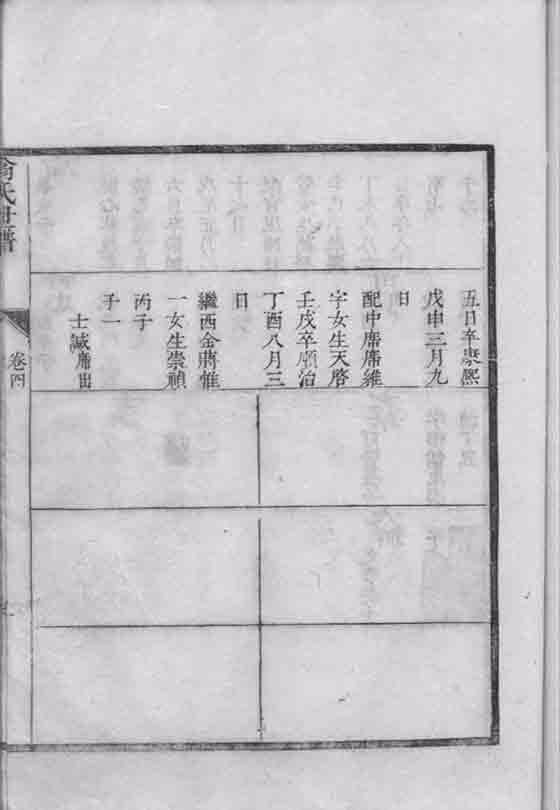 五日卒康熙
戊申三月九
日
配中席席維
字女生天啓
壬戌卒順治
丁酉八月三
日
繼西金蔣惟
一女生崇禎
丙子
子一
士諴席出
氏世譜
卷四